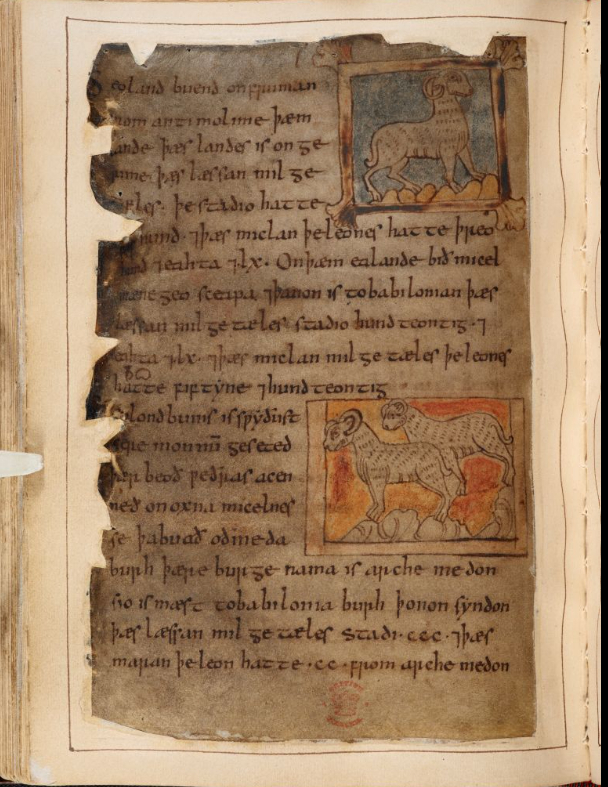 land buend on fruman
from antimolime þæm
lande þæs landes is on ge
rime þæs læssan mil ge
teles þe stadio hatte
hund ⁊ þæs miclan þe leones hatte þreo
hund ⁊ eahta ⁊ lx. On þæm ealande bið micel
mænegeo sceapa ⁊ þanon is to babilonian þæs
læssan mil getæles stadio hundteontig ⁊
eahta ⁊ lx. ⁊ þæs miclan milgetæles þe leones
hatte fiftyne ⁊ hundteontig
lond bunis is spyðust
monnū geseted
þær beoð weðras acen
ned on oxna micelnes
se þa buað oð meda
burh þære burge nama is archemedon
sio is mæst to babilonia burh þonon syndon
þæs læssan milgetæles stadi ccc. ⁊ þæs
maran þe leon hatte .cc. from archemedon